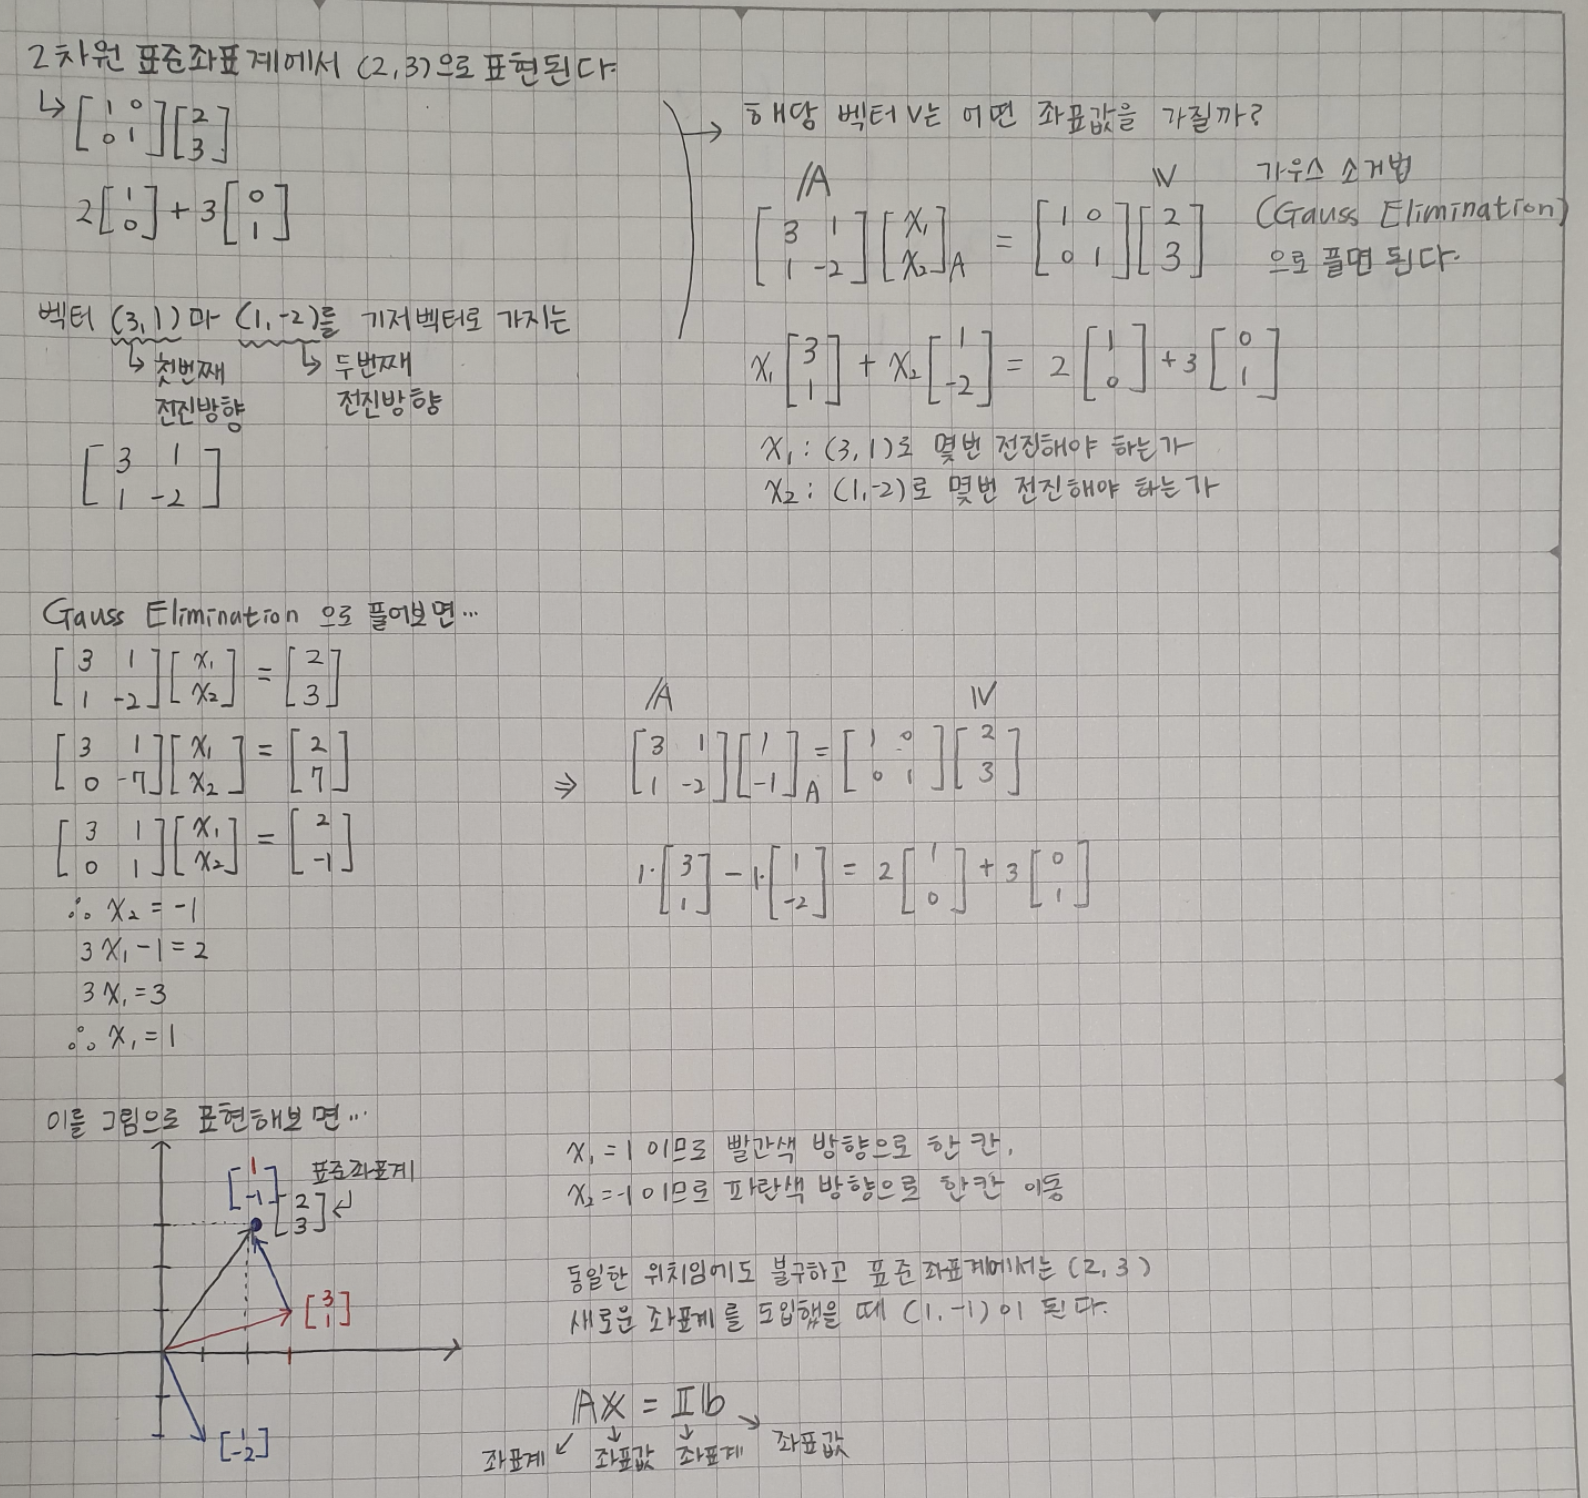 2차원 표준좌표계에서 (2,3)으로 표현된다
↳ [1 0; 0 1][2; 3]
2[1; 0] + 3[0; 1]
벡터 (3,1)과 (1,-2)를 기저벡터로 가지는
↳ 첫번째 전진방향
↳ 두번째 전진방향
[3 1; 1 -2]
→ 해당 벡터 V는 어떤 좌표값을 가질까?
A V
[3 1; 1 -2][x₁; x₂]A = [1 0; 0 1][2; 3]
가우스 소거법
(Gauss Elimination)
으로 풀면 된다.
x₁[3; 1] + x₂[1; -2] = 2[1; 0] + 3[0; 1]
x₁ : (3,1)로 몇번 전진해야 하는가
x₂ : (1,-2)로 몇번 전진해야 하는가
Gauss Elimination 으로 풀어보면...
[3 1; 1 -2][x₁; x₂] = [2; 3]
[3 1; 0 -7][x₁; x₂] = [2; 7]
[3 1; 0 1][x₁; x₂] = [2; -1]
∴ x₂ = -1
3x₁-1=2
3x₁=3
∴ x₁=1
A V
⇒ [3 1; 1 -2][1; -1]A = [1 0; 0 1][2; 3]
1·[3; 1] - 1·[1; -2] = 2[1; 0] + 3[0; 1]
이를 그림으로 표현해보면...
[1; -1]
표준좌표계
[2; 3] ↲
[3; 1]
[1; -2]
x₁=1 이므로 빨간색 방향으로 한 칸,
x₂=-1 이므로 파란색 방향으로 한칸 이동
동일한 위치임에도 불구하고 표준좌표계에서는 (2,3)
새로운 좌표계를 도입했을 때 (1,-1)이 된다.
Ax = Ib
좌표계 ↙ ↓ 좌표값 ↓ 좌표계 ↘ 좌표값